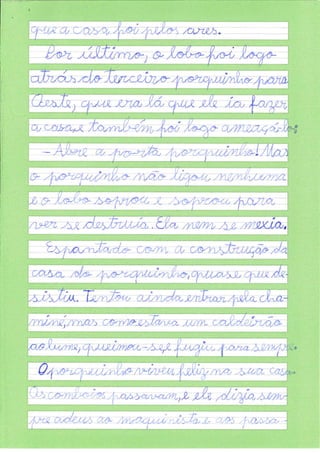 que a casa foi pelos ares.
Por último, o lobo foi logo
atrás do terceiro porquinho para
Oeste, que era lá que ele ia fazer
a casa, e também foi logo ameaçá-lo:
- Abre a porta porquinho! Mas
o porquinho não ligou nenhuma
e o lobo soprou e soprou para
ver se destruía. Ela nem se mexia.
Espantado com a construção da
casa do porquinho, quase que de-
sistiu. Tentou ainda entrar pela cha-
miné, mas como estava um caldeirão
ao lume, queimou-se, e fugiu para sempre.
O porquinho viveu feliz na sua casa.
Os comboios passavam, e ele dizia sem-
pre adeus ao maquinista e aos passa-